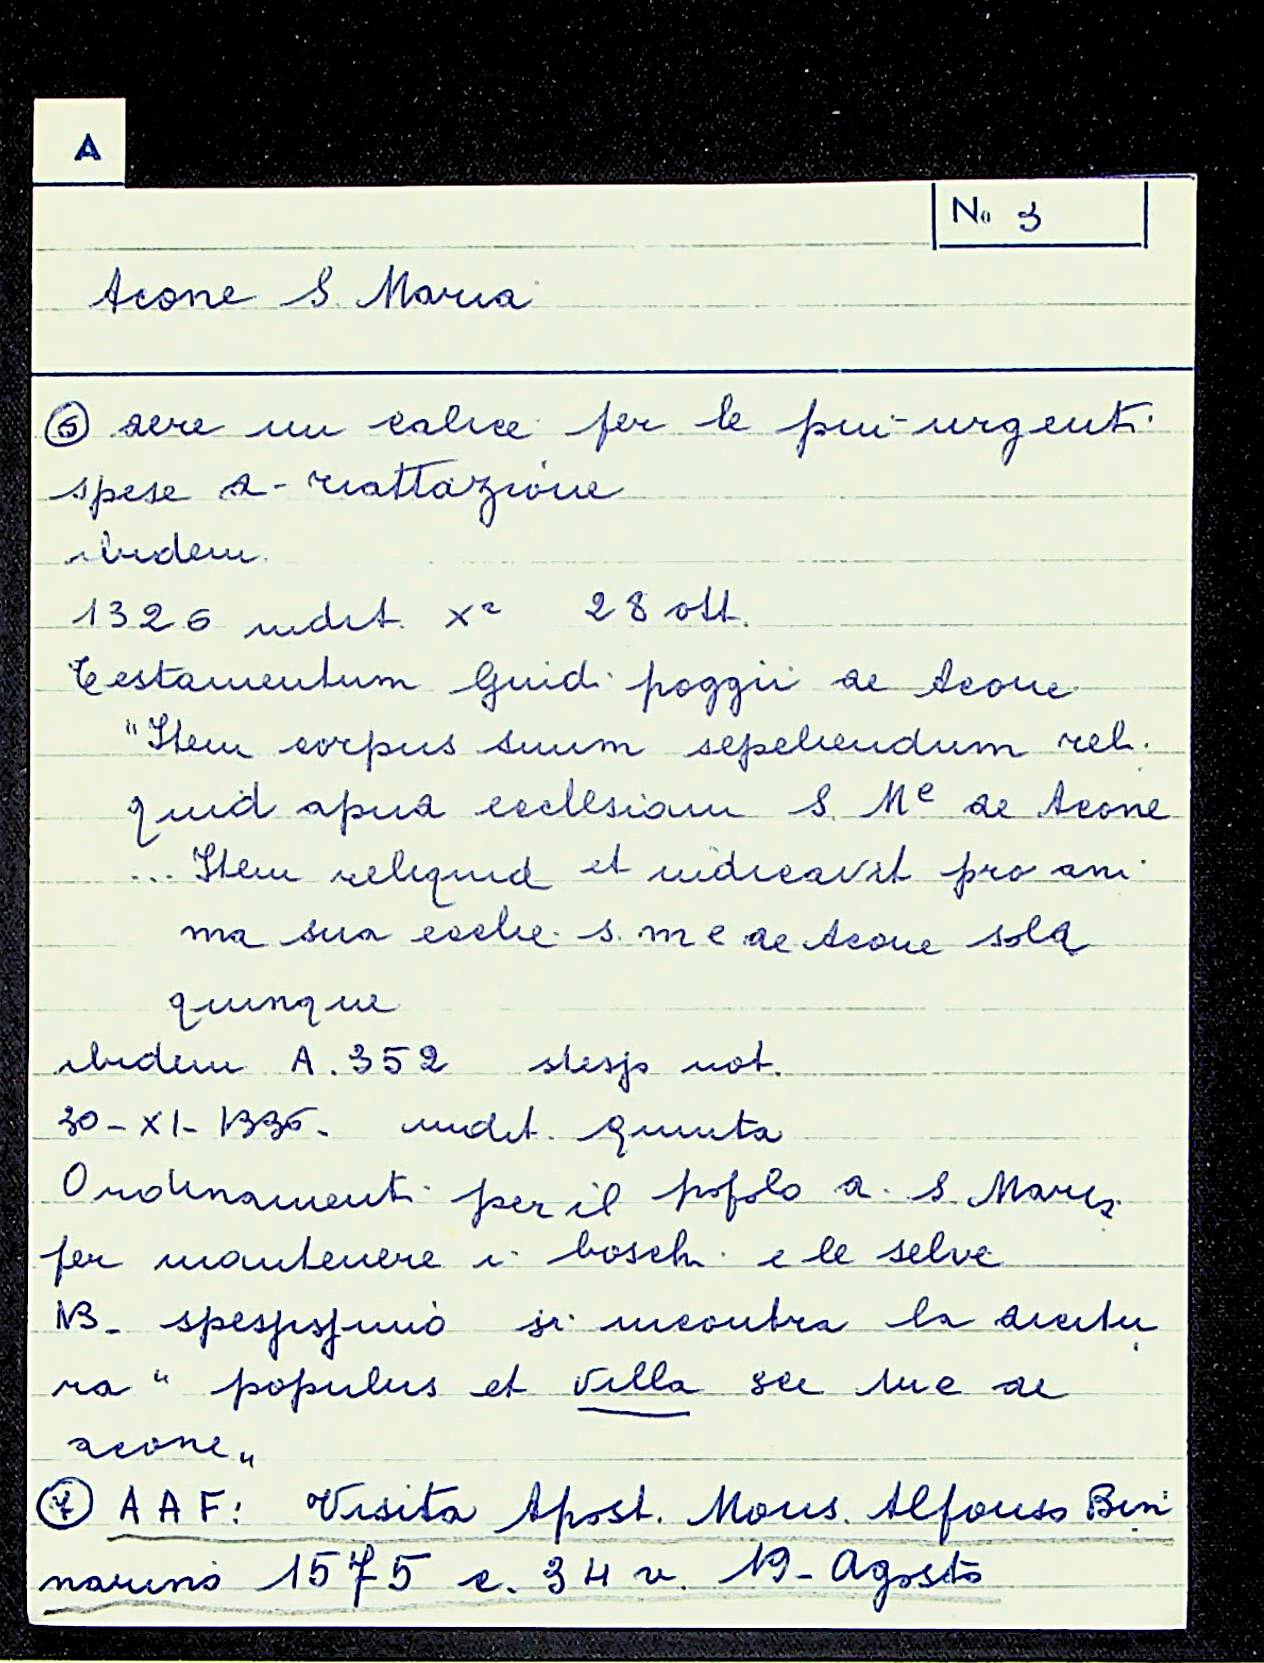 A
No 3
Acone S. Maria
⑥ dere un calice per le più urgenti
spese di riattazione
ibidem.
1326 indit. Xª 28 ott.
Testamentum Guidi poggii de Acone
"Item corpus suum sepeliendum reli
quid apud ecclesiam S. Me de Acone
... Item reliquid et iudicavit pro ani
ma sua ecclie. s. me de Acone sold
quinque
ibidem A. 352 stesso not.
30-XI-1336. indit. quinta
Ordinamenti per il popolo di S. Maria
per mantenere i boschi e le selve
NB. spessissimo si incontra la dicitu
ra " populus et villa sce me de
acone „
⑦ AAF: Visita Apost. Mons. Alfonso Bin
narino 1575 c. 34 v. 19- Agosto